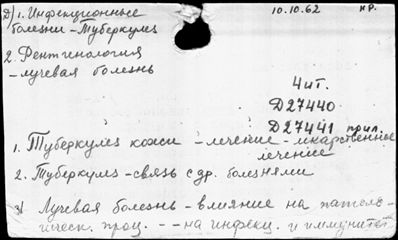 Д) 1. Инфекционные 10.10.62 кр.
болезни - Туберкулез
2. Рентгенология
- лучевая болезнь
4 ит.
Д27440
Д27441 прил.
1. Туберкулез кожи - лечение - лекарственное
лечение
2. Туберкулез - связь с др. болезнями
3) Лучевая болезнь - влияние на патоло-
гическ. проц. - - на инфекц. и иммунитет